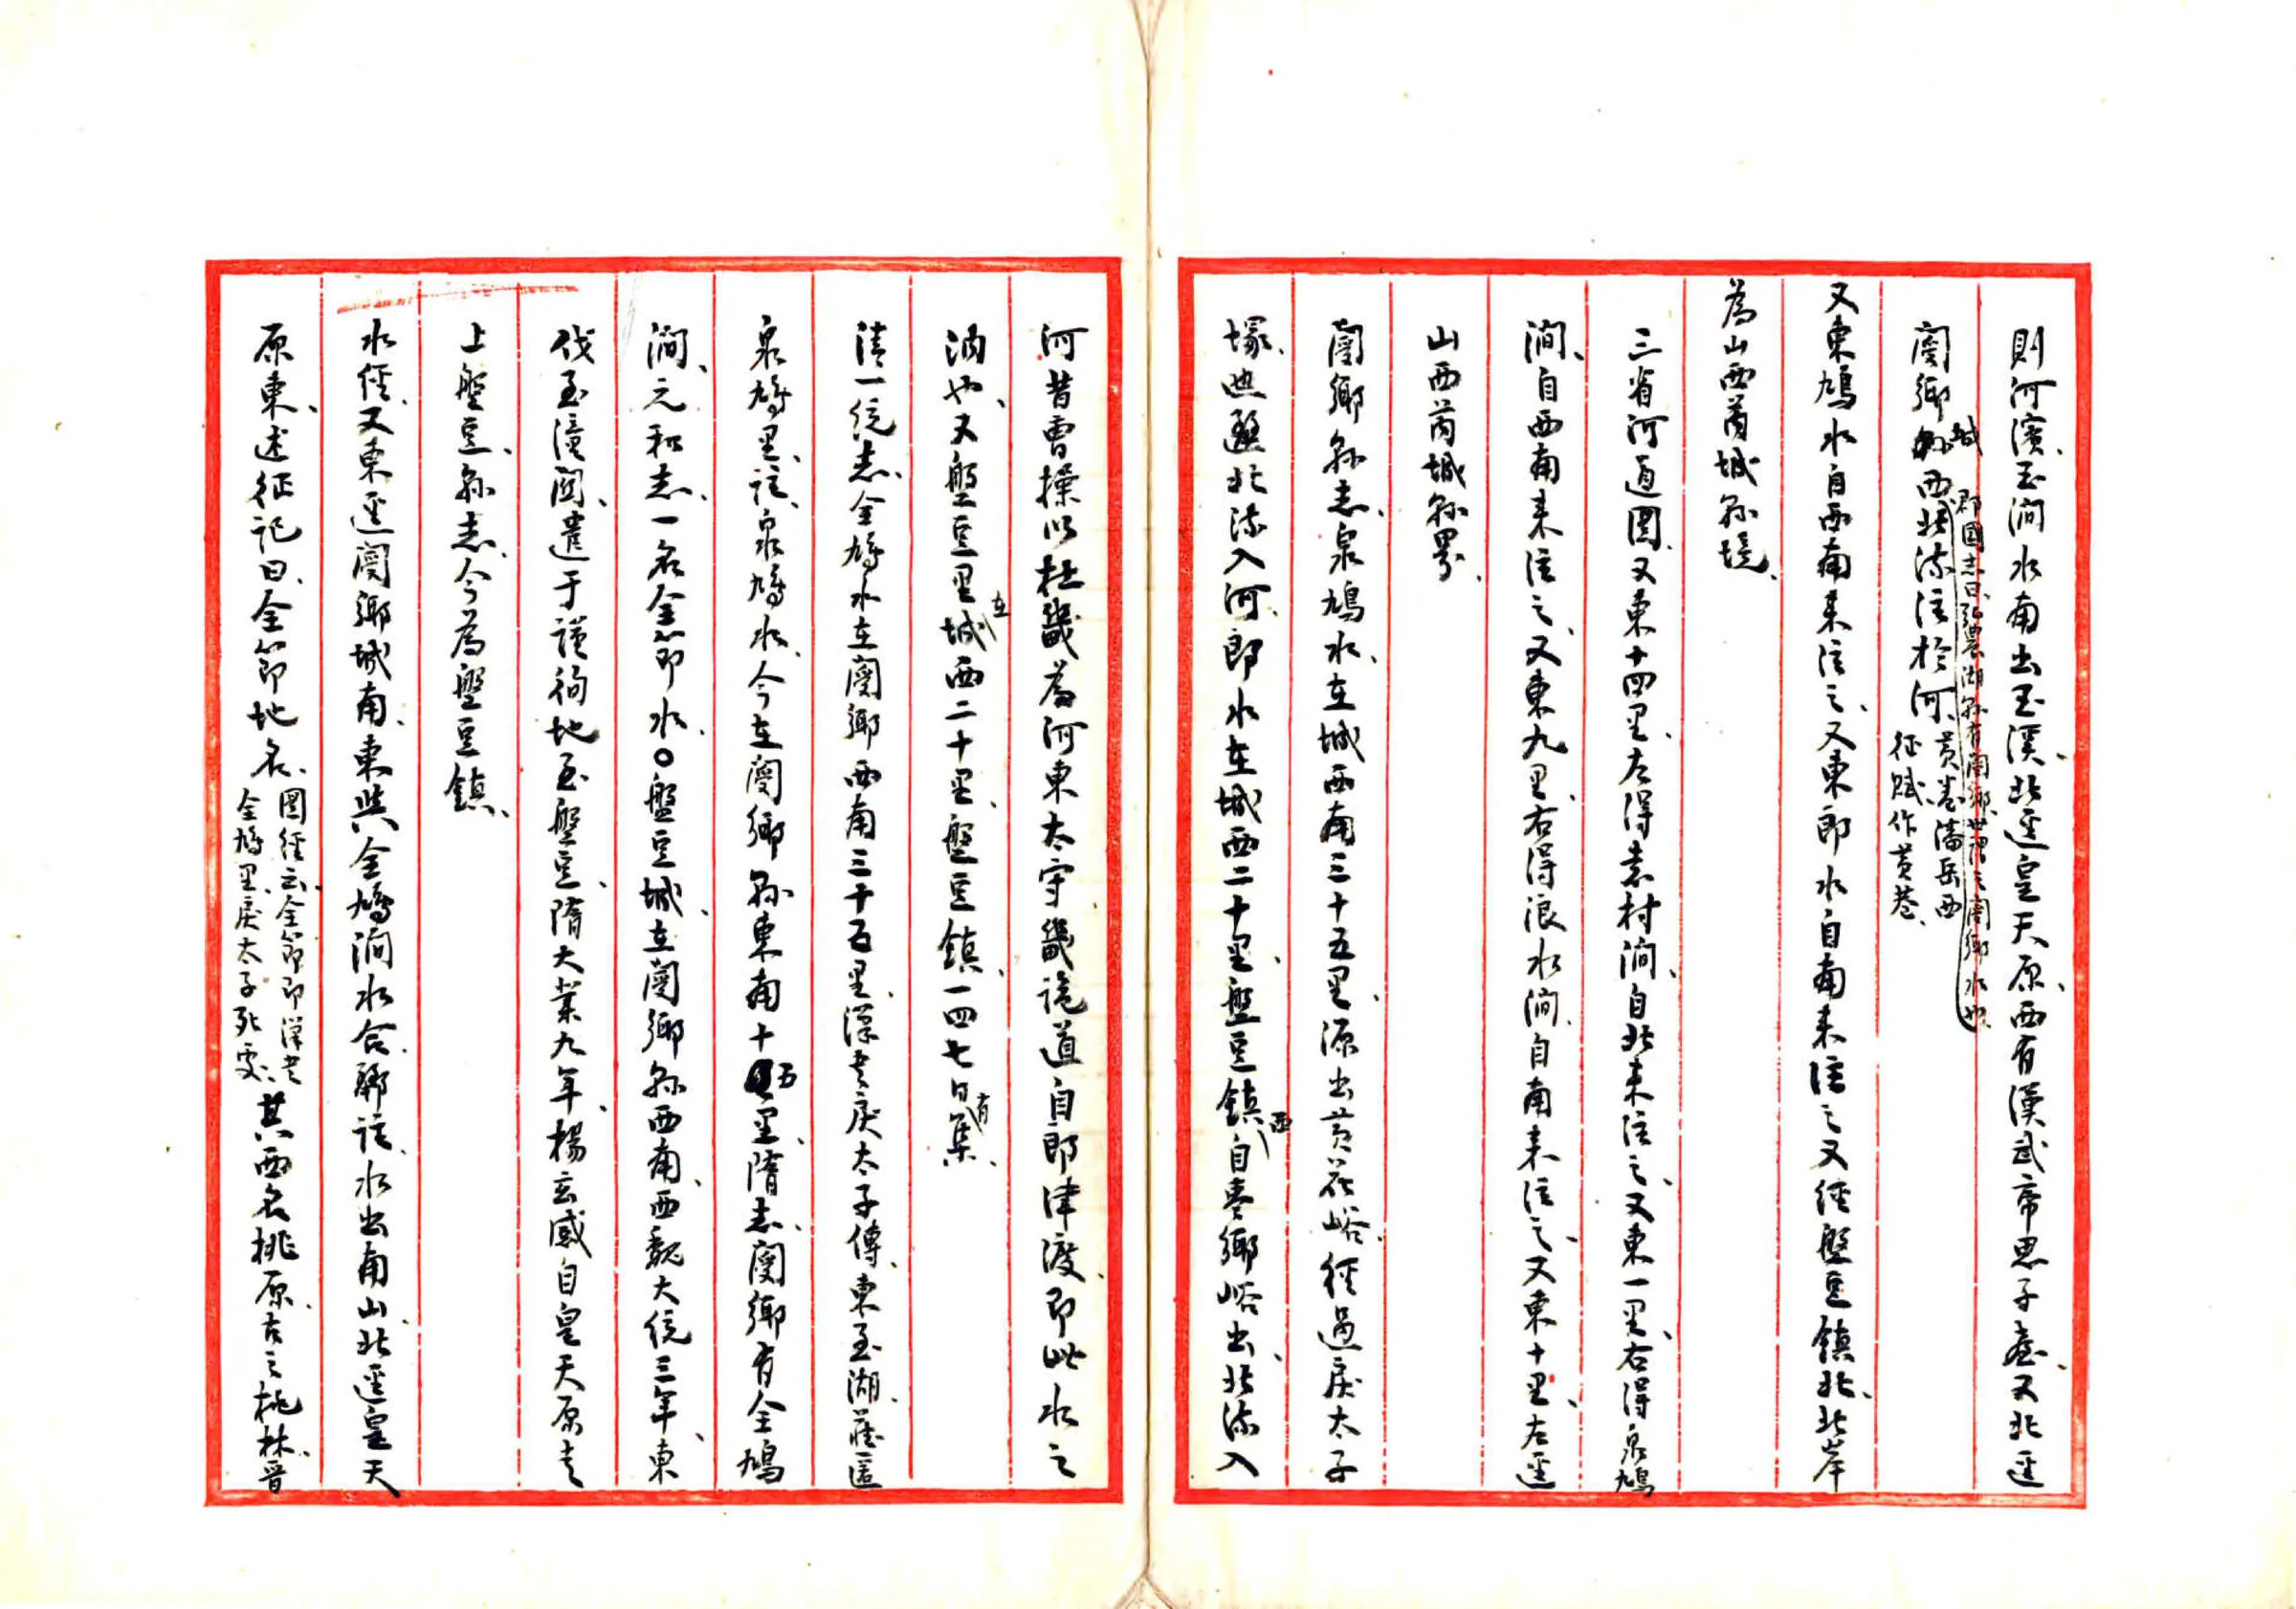 則河濱、玉澗水南出玉溪、北逕皇天原、西有漢武帝思子臺、又北逕
閿鄉城西、郡國志曰弘農湖縣有閿鄉、世謂之閿鄉水也、
北流注於河、黃卷潘岳西征賦作黃巷、
又東鳩水自西南来注之、又東郎水自南来注之又經盤豆鎮北、北岸
為山西芮城縣境、
三省河道圖、又東十四里、左得袁村澗、自北来注之、又東一里、右得泉鳩
澗、自西南来注之、又東九里、右得浪水澗、自南来注之、又東十里、左逕
山西芮城縣界、
閿鄉縣志、泉鳩水、在城西南三十五里、源出黃花峪、經過戾太子
塚、盤北流入河、郎水在城西二十里、盤豆鎮西、自棗鄉峪出、北流入
河昔曹操以杜畿為河東太守畿詭道自郎津渡、即此水之
汭也、又盤豆里城在西二十里、盤豆鎮、一四七日有集、
清一統志、全鳩水在閿鄉西南三十五里、漢書戾太子傳、東至湖、藏匿
泉鳩里、注、泉鳩水、今在閿鄉縣東南十五里、隋志、閿鄉有全鳩
澗、元和志、一名全節水、○盤豆城、在閿鄉縣西南、西魏大統三年、東
伐至潼關、遣于謹徇地至盤豆、隋大業九年、楊玄感自皇天原走
上盤豆、縣志、今為盤豆鎮、
水經、又東逕閿鄉城南、東與全鳩澗水合、酈注、水出南山、北逕皇天
原東、述征記曰、全節地名、圖經云、全節即漢書全鳩里、戾太子死處、其西名桃原、古之桃林、晉